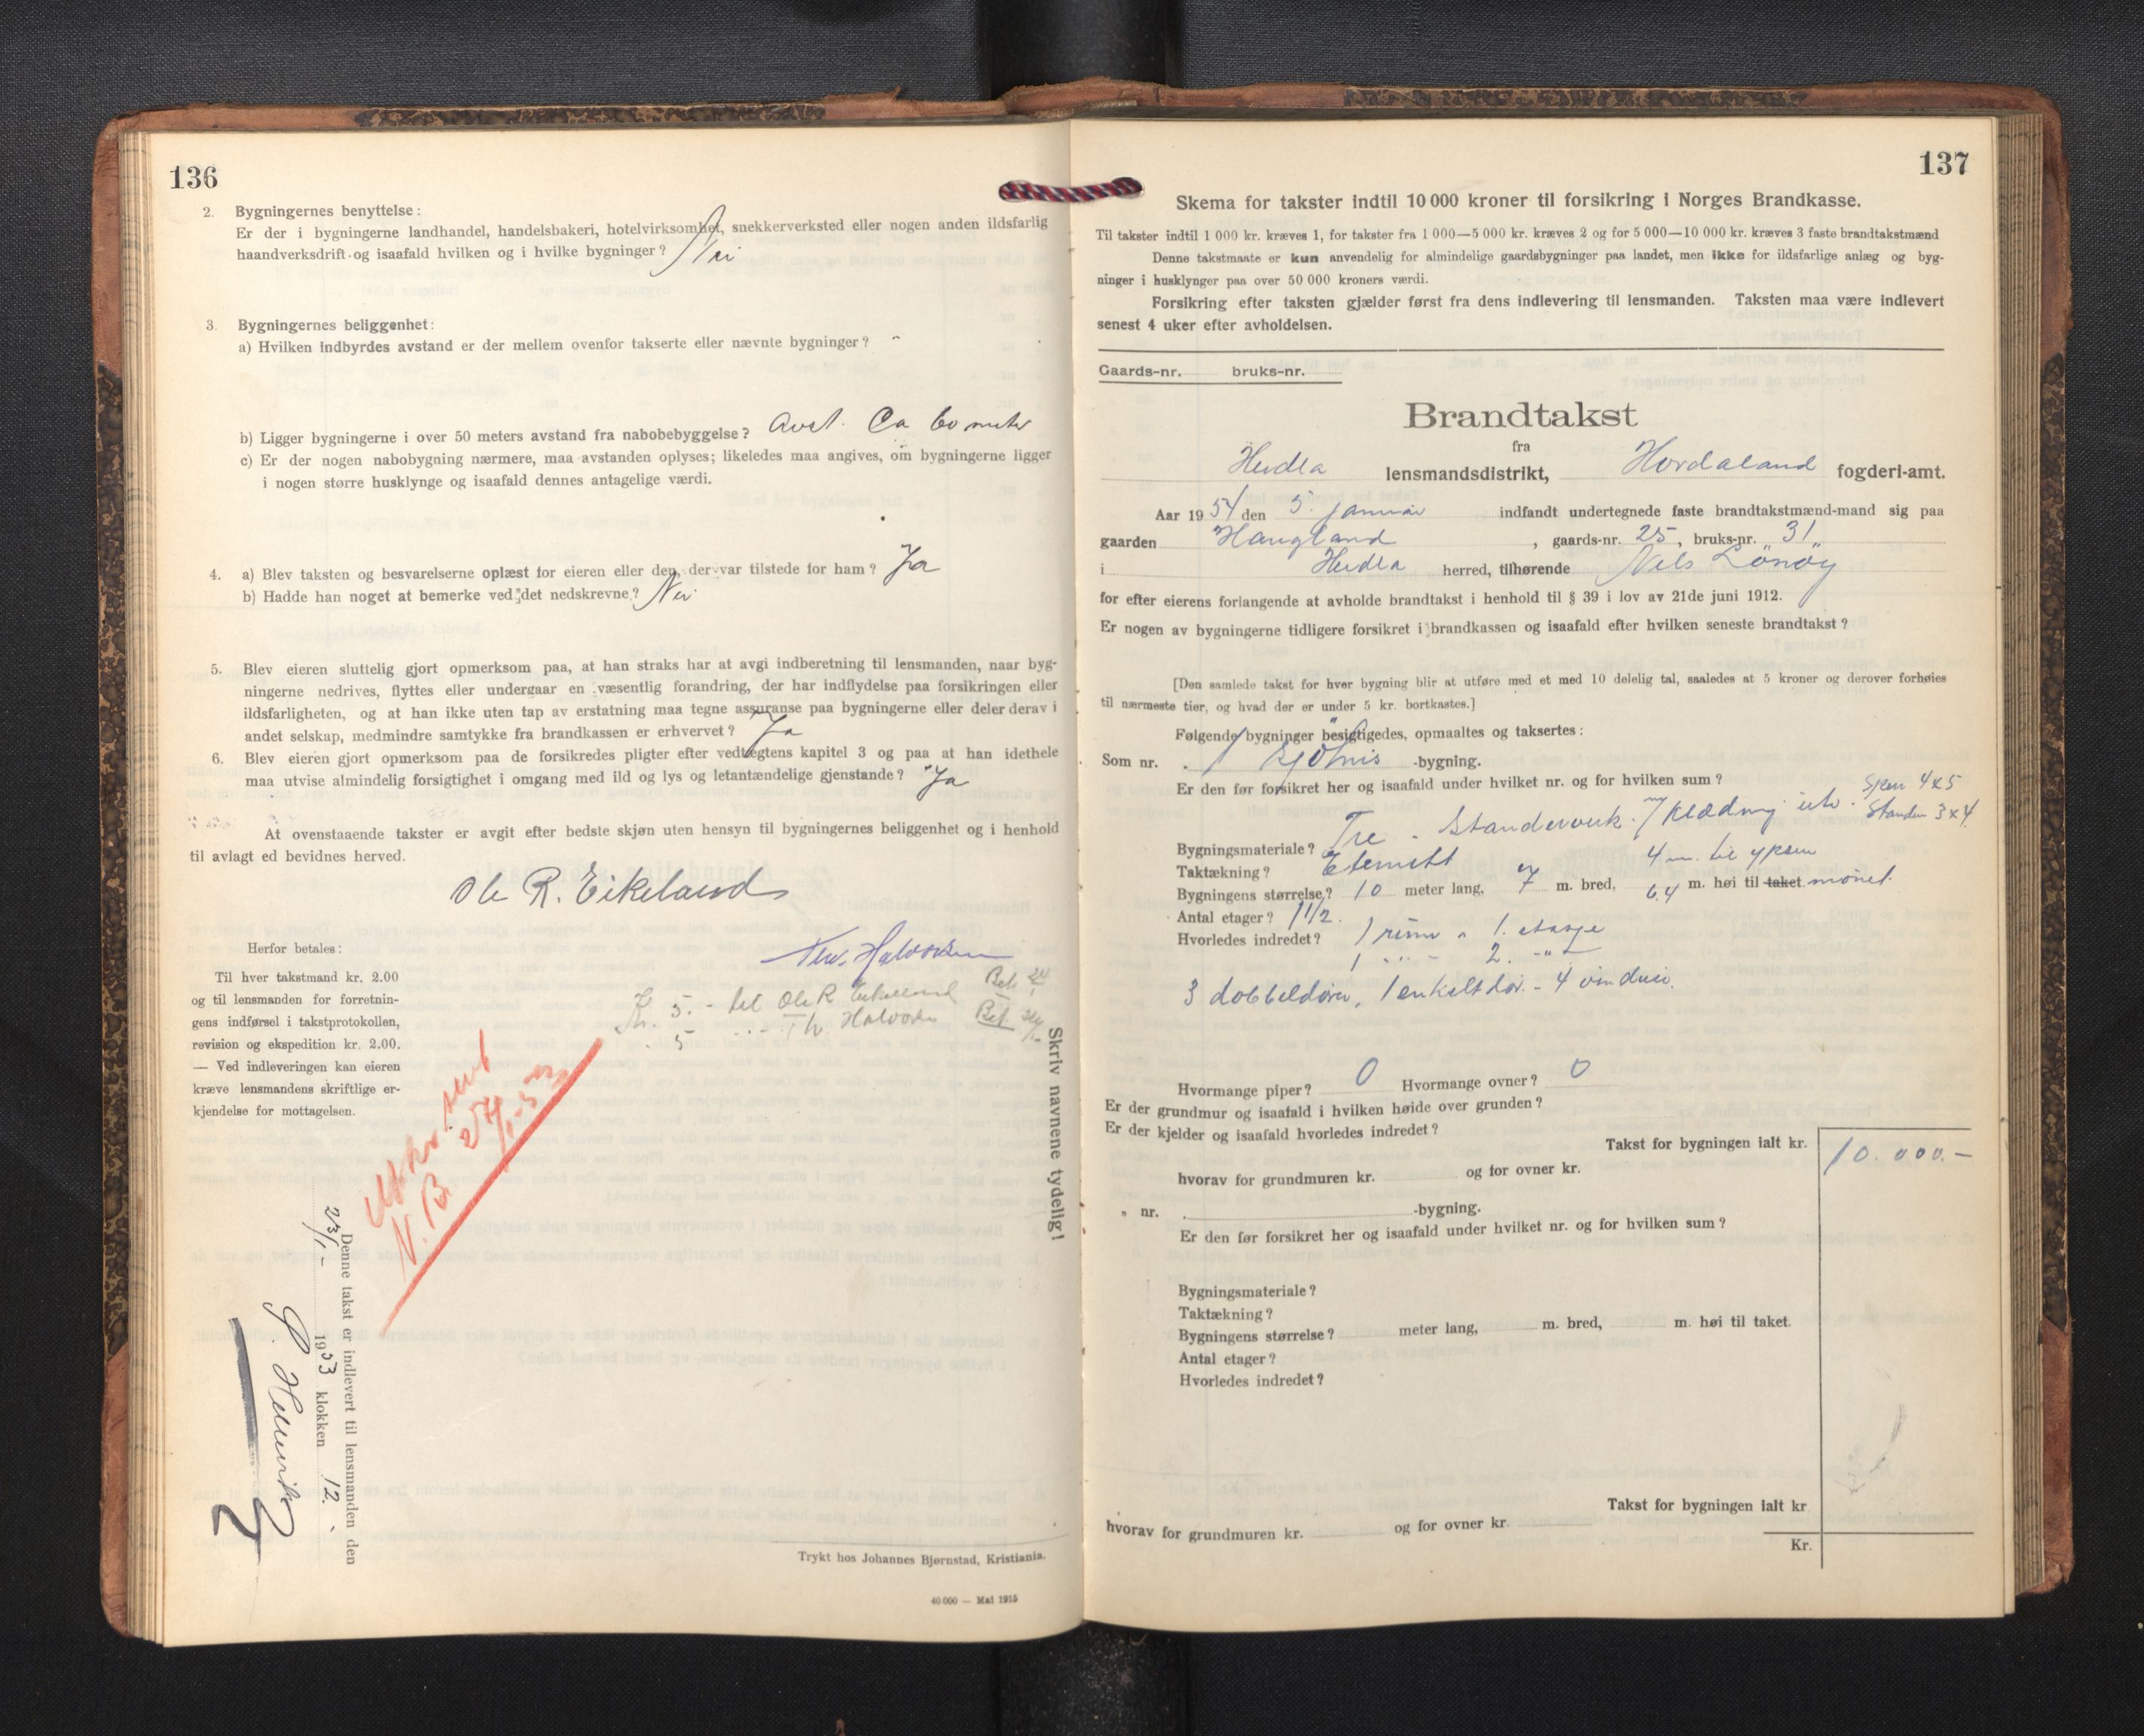 136
2. Bygningernes benyttelse:
Er der i bygningerne landhandel, handelsbakeri, hotelvirksomhet, snekkerverksted eller nogen anden ildsfarlig
haandverksdrift og isaafald hvilken og i hvilke bygninger? Nei
3. Bygningernes beliggenhet:
a) Hvilken indbyrdes avstand er der mellem ovenfor takserte eller nævnte bygninger? -
b) Ligger bygningerne i over 50 meters avstand fra nabobebyggelse? Avst. Ca 60 meter
c) Er der nogen nabobygning nærmere, maa avstanden oplyses; likeledes maa angives, om bygningerne ligger
i nogen større husklynge og isaafald dennes antagelige værdi.
4. a) Blev taksten og besvarelserne oplæst for eieren eller den, der var tilstede for ham? Ja
b) Hadde han noget at bemerke ved det nedskrevne? Nei
5. Blev eieren sluttelig gjort opmerksom paa, at han straks har at avgi indberetning til lensmanden, naar byg-
ningerne nedrives, flyttes eller undergaar en væsentlig forandring, der har indflydelse paa forsikringen eller
ildsfarligheten, og at han ikke uten tap av erstatning maa tegne assuranse paa bygningerne eller deler derav i
andet selskap, medmindre samtykke fra brandkassen er erhvervet? Ja
6. Blev eieren gjort opmerksom paa de forsikredes pligter efter vedtægtens kapitel 3 og paa at han idethele
maa utvise almindelig forsigtighet i omgang med ild og lys og letantændelige gjenstande? Ja
At ovenstaaende takster er avgit efter bedste skjøn uten hensyn til bygningernes beliggenhet og i henhold
til avlagt ed bevidnes herved.
Ole R. Eikeland
Halvorsen
Herfor betales:
Til hver takstmand kr. 2.00
og til lensmanden for forretnin-
gens indførsel i takstprotokollen,
revision og ekspedition kr. 2.00.
— Ved indleveringen kan eieren
kræve lensmandens skriftlige er-
kjendelse for mottagelsen.
Kr. 5.- til Ole R Eikeland Bet
5 - Halvorsen Bet
Skriv navnene tydelig!
N.B.
Denne takst er indlevert til lensmanden den
23/1- 1953 klokken 12.
Trykt hos Johannes Bjørnstad, Kristiania.
40 000 — Mai 1915
137
Skema for takster indtil 10 000 kroner til forsikring i Norges Brandkasse.
Til takster indtil 1 000 kr. kræves 1, for takster fra 1 000—5 000 kr. kræves 2 og for 5 000—10 000 kr. kræves 3 faste brandtakstmænd
Denne takstmaate er kun anvendelig for almindelige gaardsbygninger paa landet, men ikke for ildsfarlige anlæg og byg-
ninger i husklynger paa over 50 000 kroners værdi.
Forsikring efter taksten gjælder først fra dens indlevering til lensmanden. Taksten maa være indlevert
senest 4 uker efter avholdelsen.
Gaards-nr. bruks-nr.
Brandtakst
fra
Herdla lensmandsdistrikt, Hordaland fogderi-amt.
Aar 1954 den 5. januar indfandt undertegnede faste brandtakstmænd-mand sig paa
gaarden Haugland, gaards-nr. 25, bruks-nr. 31
i Herdla herred, tilhørende Nils Lönöy
for efter eierens forlangende at avholde brandtakst i henhold til § 39 i lov av 21de juni 1912.
Er nogen av bygningerne tidligere forsikret i brandkassen og isaafald efter hvilken seneste brandtakst?
[Den samlede takst for hver bygning blir at utføre med et med 10 delelig tal, saaledes at 5 kroner og derover forhøies
til nærmeste tier, og hvad der er under 5 kr. bortkastes.]
Følgende bygninger besigtigedes, opmaaltes og taksertes:
Som nr. 1 Sjöhus -bygning.
Er den før forsikret her og isaafald under hvilket nr. og for hvilken sum?
Sper 4x5
Stander 3x4
Bygningsmateriale? Tre - Standerverk. klædning utv.
Taktækning? Eternitt 4 m. til
Bygningens størrelse? 10 meter lang, 7 m. bred, 6.4 m. høi til taket mönet.
Antal etager? 1 1/2.
Hvorledes indredet? 1 rum i 1. etasje
1 " " - 2. - " -
3 dobbeldörer, 1 enkelt dör. - 4 vinduer.
Hvormange piper? 0 Hvormange ovner? 0
Er der grundmur og isaafald i hvilken høide over grunden?
Er der kjelder og isaafald hvorledes indredet?
Takst for bygningen ialt kr. 10.000.-
hvorav for grundmuren kr. og for ovner kr.
" nr. -bygning.
Er den før forsikret her og isaafald under hvilket nr. og for hvilken sum?
Bygningsmateriale?
Taktækning?
Bygningens størrelse? meter lang, m. bred, m. høi til taket.
Antal etager?
Hvorledes indredet?
Takst for bygningen ialt kr
hvorav for grundmuren kr. og for ovner kr.
Kr.